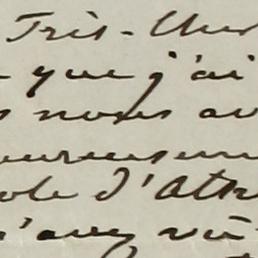 Très-Cher
que j'ai
nous av
eureusem
ole d'Atta
n'avez vu